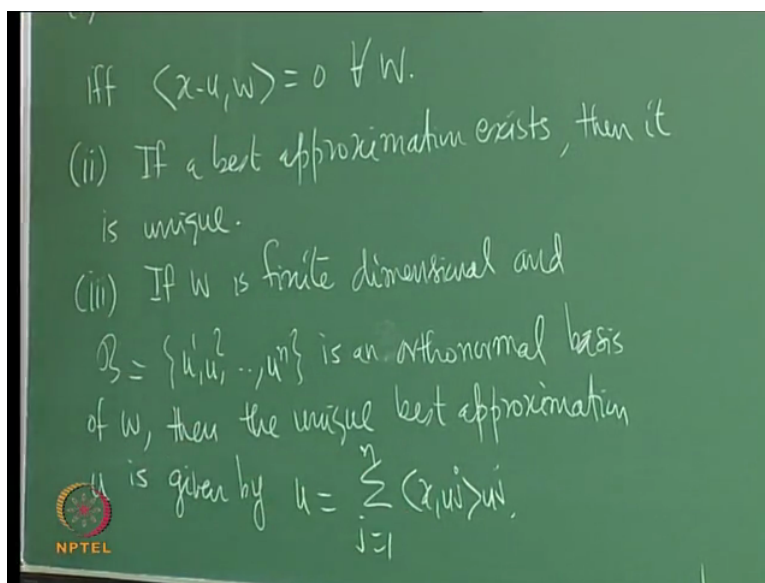 iff <x-u, w> = 0 ∀ w.
(ii) If a best approximation exists, then it
is unique.
(iii) If W is finite dimensional and
B = {u¹, u², .., uⁿ} is an orthonormal basis
of W, then the unique best approximation
u is given by u = Σ_{j=1}^{n} <x, uʲ> uʲ.
NPTEL